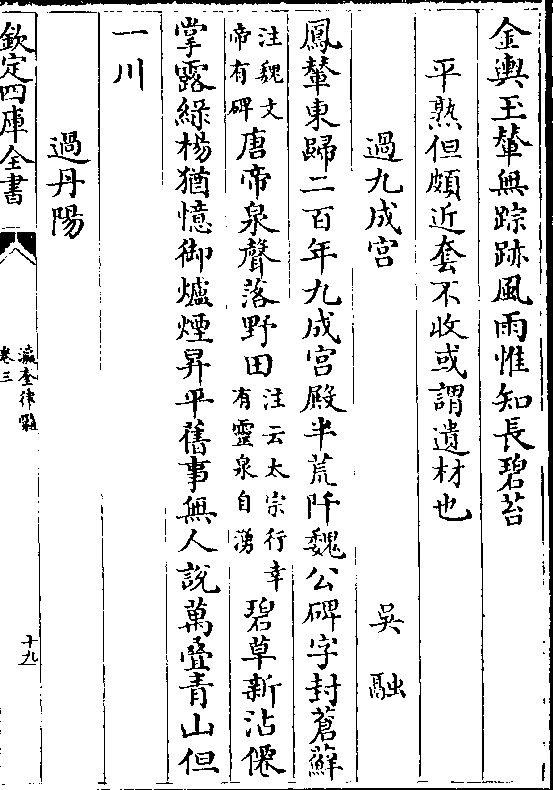 金輿玉輦無踪跡風雨惟知長碧苔
平熟但頗近套不收或謂遺材也
過九成宮　吳融
鳳輦東歸二百年九成宮殿半荒阡魏公碑字封蒼蘚
注魏文
帝有碑
唐帝泉聲落野田
注云太宗行幸
有靈泉自湧
碧草新沾僊
掌露綠楊猶憶御爐煙昇平舊事無人說萬疊青山但
一川
過丹陽
欽定四庫全書
瀛奎律髓
卷三
十九